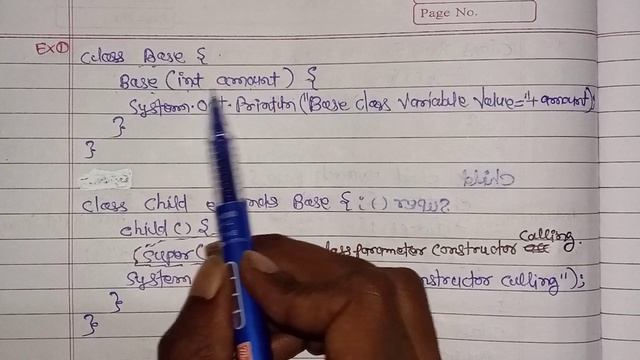 Page No.
Ex①
class Base {
Base (int amount) {
System.out.Println("Base class variable value="+amount);
}
}
class Child Base {
child() {
(super( parameter constructor calling.
System constructor calling");
}
}